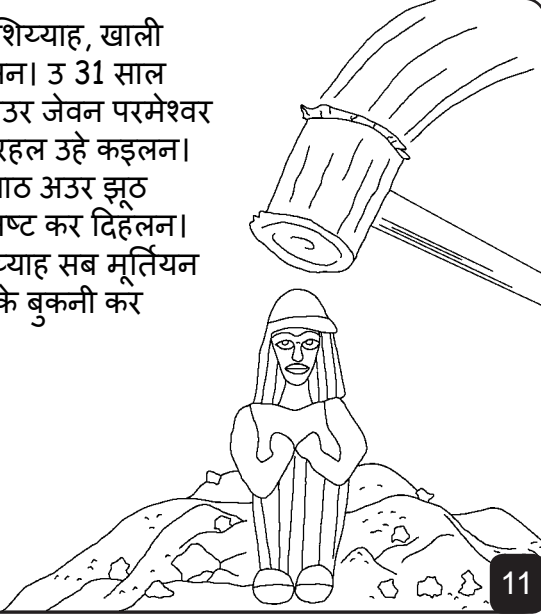 शिय्याह, खाली
उ 31 साल
जेवन परमेश्वर
रहल उहे कइलन।
अउर झूठ
कर दिहलन।
सब मूर्तियन
के बुकनी कर
11